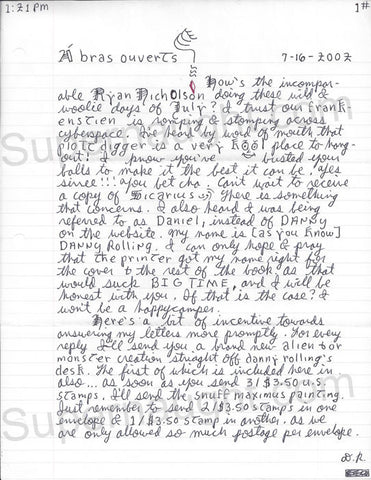 1:21 pm
1#
Á bras ouverts
7-16-2002
How's the incompar-
able Ryan Nicholson doing these wild &
woolie days of July? I trust our Frank-
enstien is romping & stomping across
cyberspace. I've heard by word of mouth that
plotdigger is a very Kool place to hang-
out! I know you've busted your
balls to make it the best it can be. yes
siree!!! you betcha. Can't wait to receive
a copy of Sicarius. There is something
that concerns. I also heard I was being
referred to as Daniel, instead of DANNY
on the website. my name is [as you know]
DANNY Rolling. I can only hope & pray
that the printer got my name right for
the cover & the rest of the book as that
would suck BIG TIME, and I will be
honest with you. If that is the case? I
won't be a happy camper.
Here's a bit of incentive towards
answering my letters more promptly. For every
reply I'll send you a brand new alien or
monster creation straight off danny rolling's
desk. The first of which is included here in
also... as soon as you send 3/$3.50 U.S.
stamps. I'll send the snuff maximus painting.
Just remember to send 2/$3.50 stamps in one
envelope & 1/$3.50 stamp in another. as we
are only allowed so much postage per envelope.
D.R.